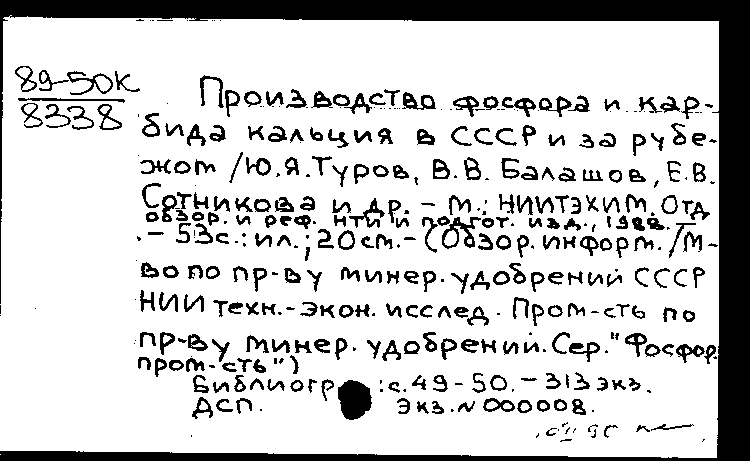 89-50К
8338
Производство фосфора и кар-
бида кальция в СССР и за рубе-
жом /Ю.Я.Туров, В.В. Балашов, Е.В.
Сотникова и др. - М.: НИИТЭХИМ. Отд
обзор. и реф. НТИ и подгот. изд., 1988. -
- 53с.: ил.; 20см. - (Обзор. информ. /М-
во по пр-ву минер. удобрений СССР
НИИ техн.-экон. исслед. Пром-сть по
пр-ву минер. удобрений. Сер. "Фосфор.
пром-сть")
Библиогр :с. 49-50. - 313 экз.
ДСП. Экз. N 000008.